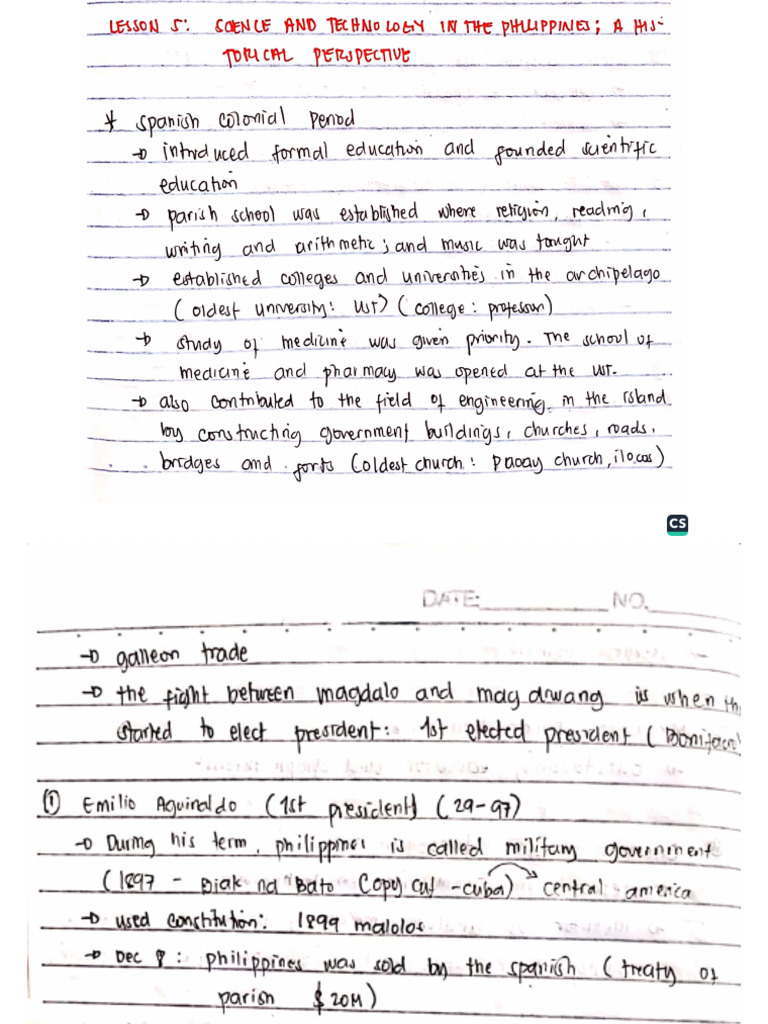 LESSON 5: SCIENCE AND TECHNOLOGY IN THE PHILIPPINES; A HIS-
TORICAL PERSPECTIVE
* Spanish Colonial Period
→ introduced formal education and founded scientific
education
→ parish school was established where religion, reading,
writing and arithmetic; and music was taught
→ established colleges and universities in the archipelago
(oldest university: UST) (college: professor)
→ study of medicine was given priority. The school of
medicine and pharmacy was opened at the UST.
→ also contributed to the field of engineering in the island
by constructing government buildings, churches, roads,
bridges and forts (oldest church: Paoay church, ilocos)
CS
DATE: NO.
→ galleon trade
→ the fight between magdalo and magdiwang is when th
started to elect president: 1st elected president (Bonifacio
① Emilio Aguinaldo (1st president) (29-97)
→ During his term, philippines is called military government
(1897 - Biak na Bato Copy cat - cuba) → central america
→ used constitution: 1899 malolos
→ Dec 8: philippines was sold by the spanish (treaty of
parish $20M)